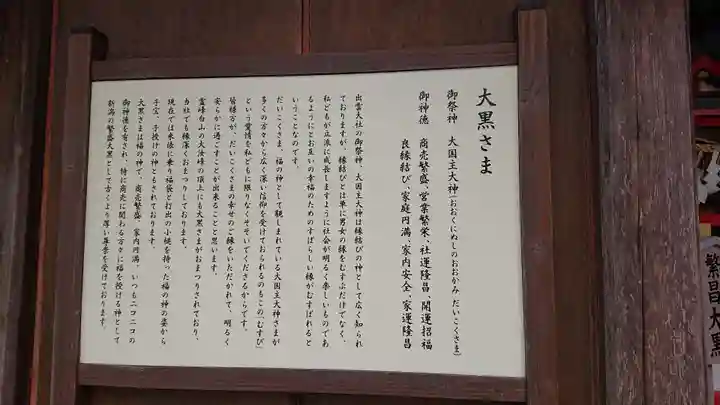 大黒さま
御祭神 大国主大神(おおくにぬしのおおかみ、だいこくさま)
御神徳 商売繁盛、営業繁栄、社運隆昌、開運招福
良縁結び、家庭円満、家内安全、家運隆昌
出雲大社の御祭神、大国主大神は縁結びの神として広く知られ
ておりますが、縁結びとは単に男女の縁をむすぶだけでなく、
私どもが立派に成長しますように社会が明るく楽しいものであ
るようにとお互いの幸福のためのすばらしい縁がむすばれると
いうことなのです。
だいこくさま、福の神として親しまれている大国主大神さまが
多くの方々から広く深い信仰を受けておられるのもこの「むすび」
という愛情を私どもに限りなくそそいでくださるからです。
皆様方が、だいこくさまの幸せのご縁をいただかれて、明るく
安らかに過ごすことが出来ることと思います。
霊峰白山の大汝峰の頂上にも大黒さまがおまつりされており、
当社でも縁深くおまつりしております。
現在では米俵に乗り福袋と打出の小槌を持った福の神の姿から
子宝、子授けの神ともされております。
大黒さまは福の神で、商売繁盛、家内円満、いつもニコニコの
御神徳を有され、特に商売に関わる方々に福を授ける神として
新潟の繁盛大黒として古くより厚い尊崇を受けております。
繁昌大黒